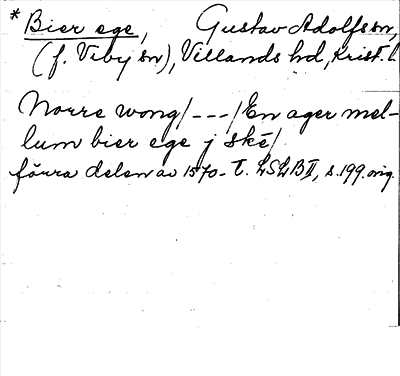 * Bier ege, Gustav Adolfs sn,
(f. Viby sn), Villands hd, Krist. l.
Norre wong/---/En ager mel-
lum bier ege j ské/.
förra delen av 1570-t. LSLB II, s. 199. orig.